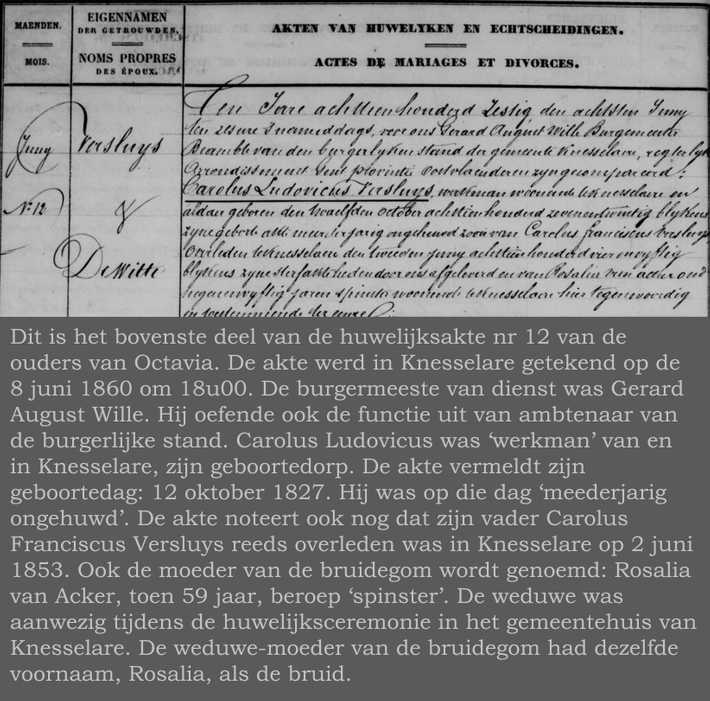 MAENDEN.
MOIS.
EIGENNAMEN
DER GETROUWDEN.
NOMS PROPRES
DES ÉPOUX.
AKTEN VAN HUWELYKEN EN ECHTSCHEIDINGEN.
ACTES DE MARIAGES ET DIVORCES.
Juny
N° 12
Versluys
&
De Witte
Ten Jare achttien honderd Zestig den achtsten Juny
ten ure s'namiddags, voor ons Gerard August Wille Burgemeester
van den burgerlyken stand der gemeente Knesselaere,
Arrondissement Gent provintie Oostvlaenderen zyn gecompareerd:
Carolus Ludovicus Versluys, werkman woonende te Knesselaere en
aldaer geboren den twaelfden october achttien honderd zevenentwintig blykens
zyne geborte akte meerderjarig ongehuwd zoon van Carolus franciscus Versluys
Overleden te Knesselaere den tweeden juny achttien honderd vyftig
blykens zyne en van Rosalia van acker oud
negenenvyftig jaren spinster woonende te Knesselaere hier tegenwoordig
Dit is het bovenste deel van de huwelijksakte nr 12 van de
ouders van Octavia. De akte werd in Knesselare getekend op de
8 juni 1860 om 18u00. De burgermeeste van dienst was Gerard
August Wille. Hij oefende ook de functie uit van ambtenaar van
de burgerlijke stand. Carolus Ludovicus was ‘werkman’ van en
in Knesselare, zijn geboortedorp. De akte vermeldt zijn
geboortedag: 12 oktober 1827. Hij was op die dag ‘meederjarig
ongehuwd’. De akte noteert ook nog dat zijn vader Carolus
Franciscus Versluys reeds overleden was in Knesselare op 2 juni
1853. Ook de moeder van de bruidegom wordt genoemd: Rosalia
van Acker, toen 59 jaar, beroep ‘spinster’. De weduwe was
aanwezig tijdens de huwelijksceremonie in het gemeentehuis van
Knesselare. De weduwe-moeder van de bruidegom had dezelfde
voornaam, Rosalia, als de bruid.